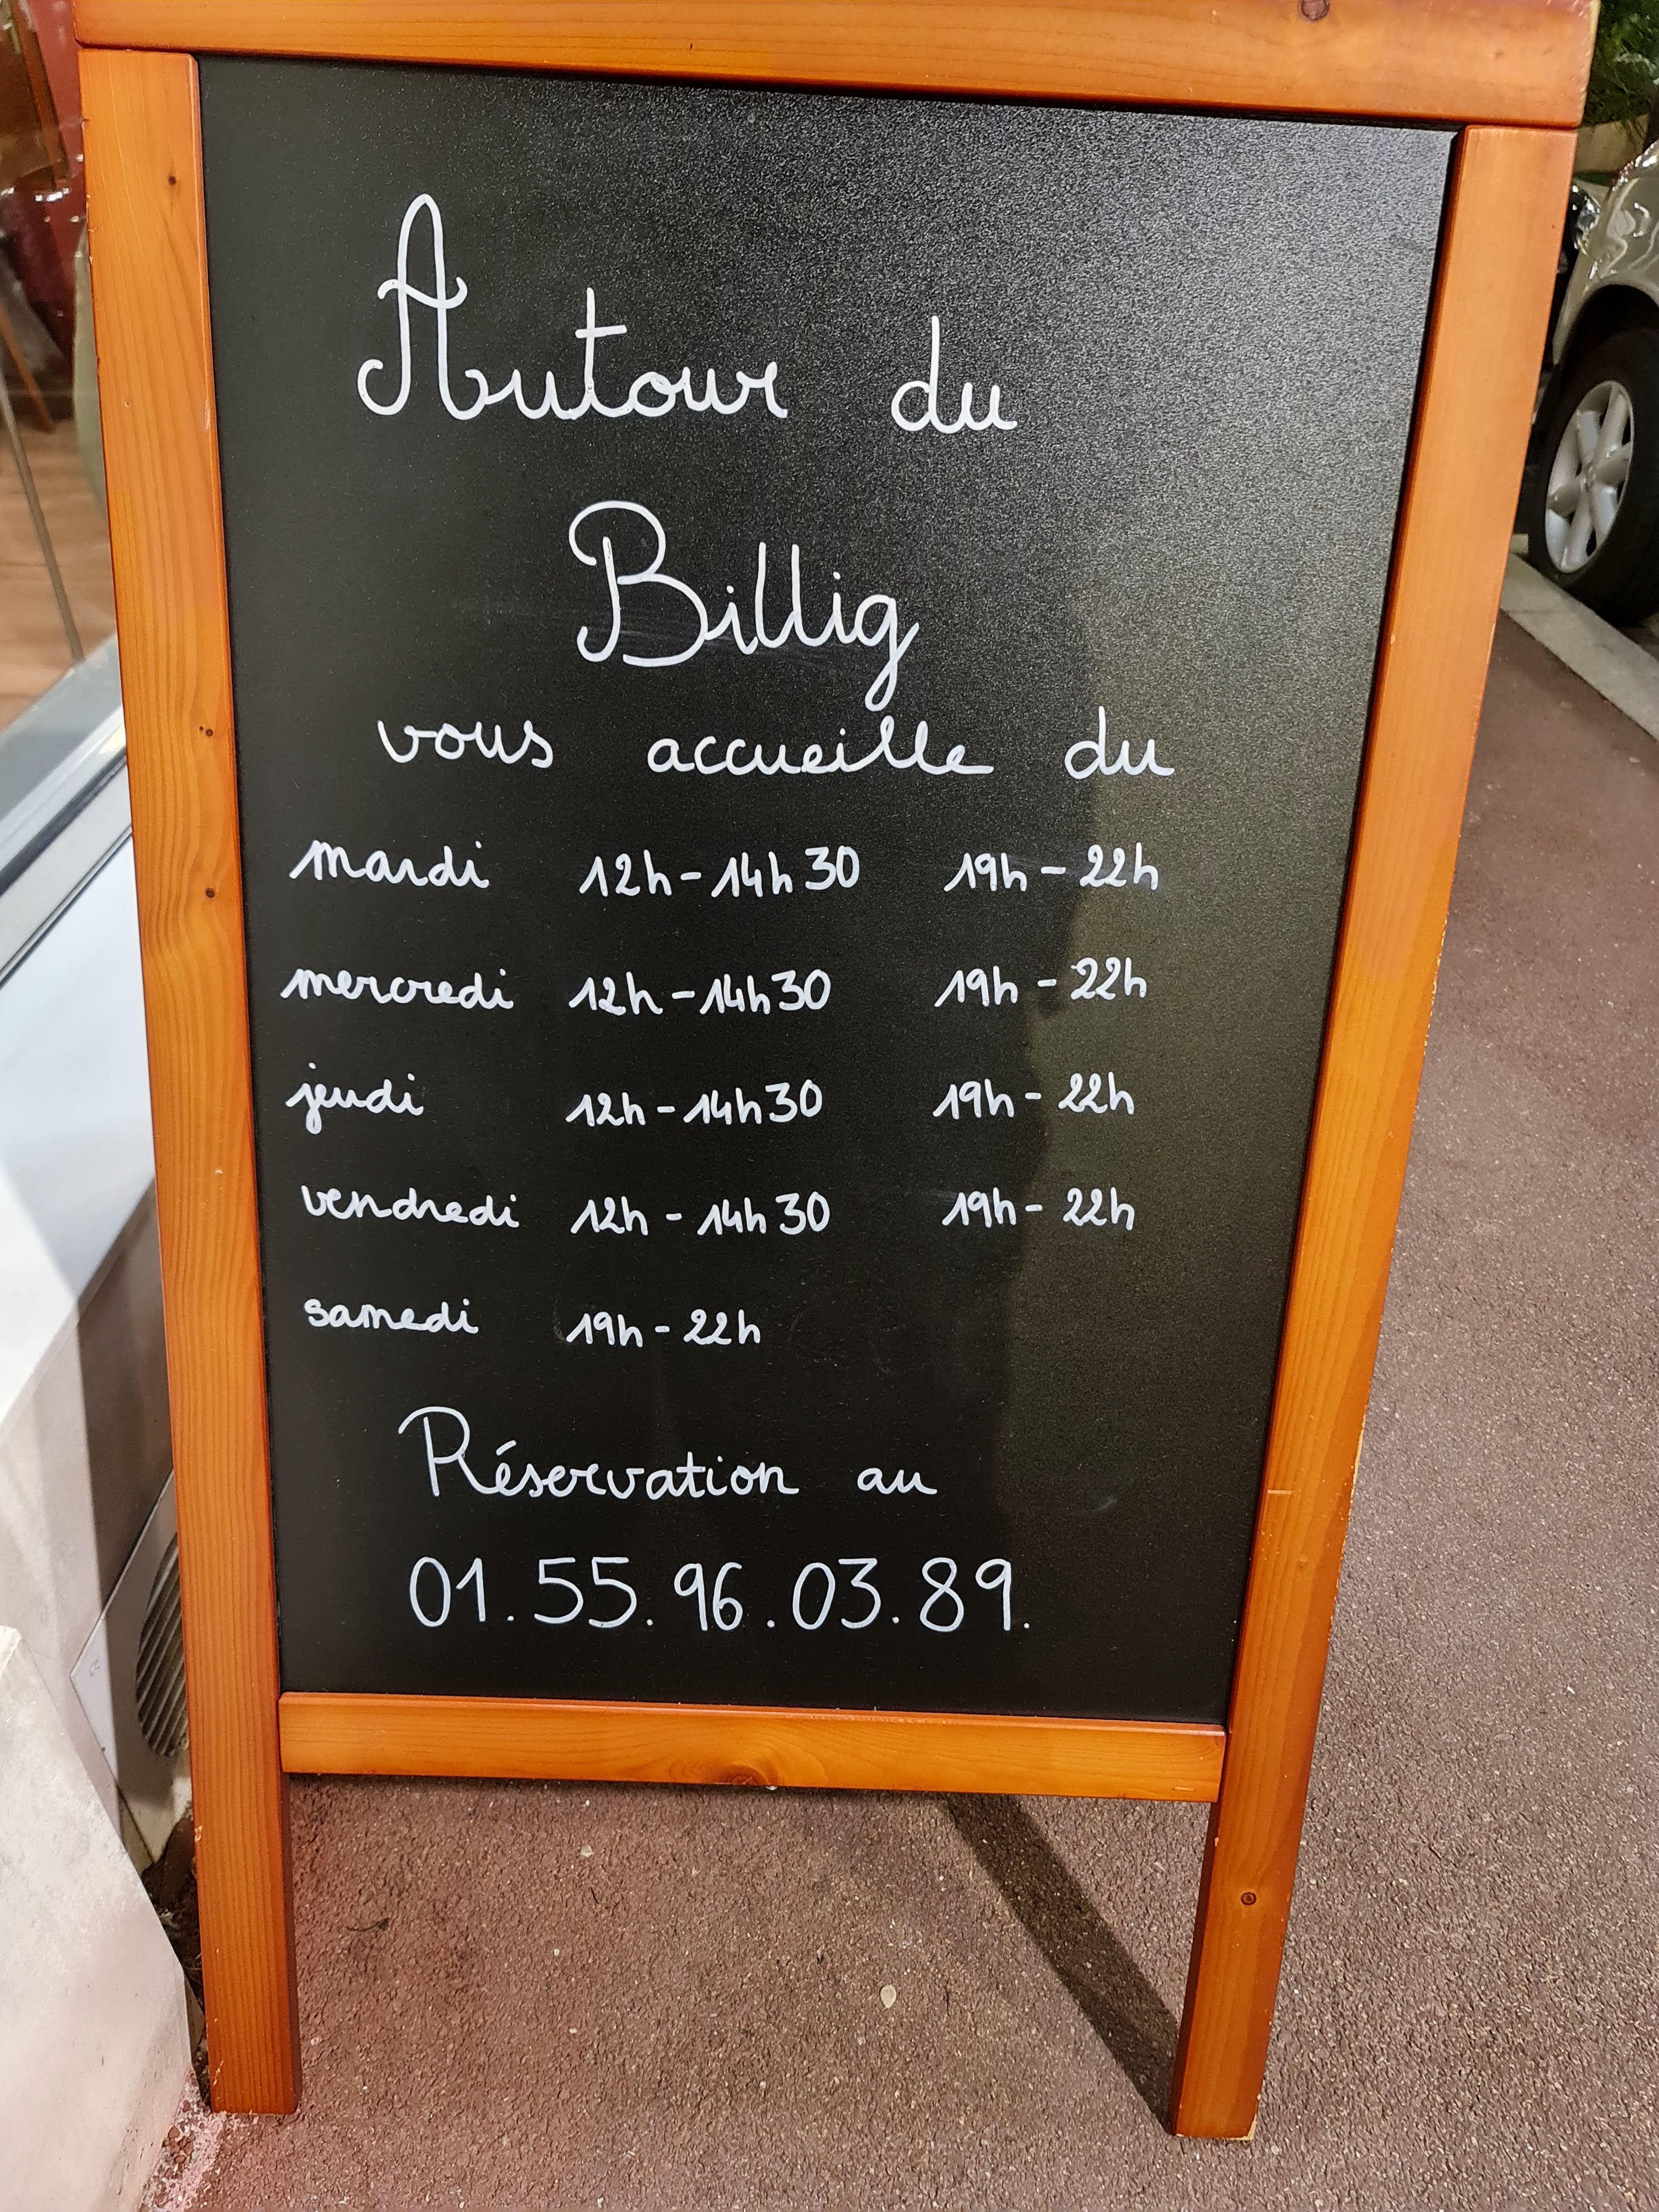 Autour du
Billig
vous accueille du
mardi 12h-14h30 19h-22h
mercredi 12h-14h30 19h-22h
jeudi 12h-14h30 19h-22h
vendredi 12h-14h30 19h-22h
samedi 19h-22h
Réservation au
01.55.96.03.89.